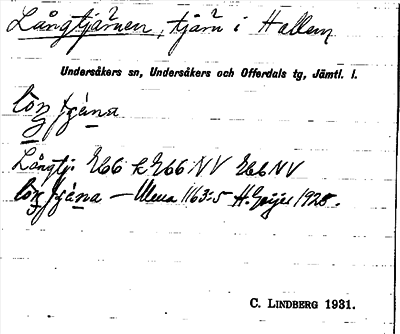 Långtjärnen, tjärn i Hallem
Undersåkers sn, Undersåkers och Offerdals tg, Jämtl. l.
lôŋ tjä̀na
Långtj. 266 k 266 NV 266 NV
lôŋ tjä̀na — 1163:5 H. Geijer 1928.
C. LINDBERG 1931.